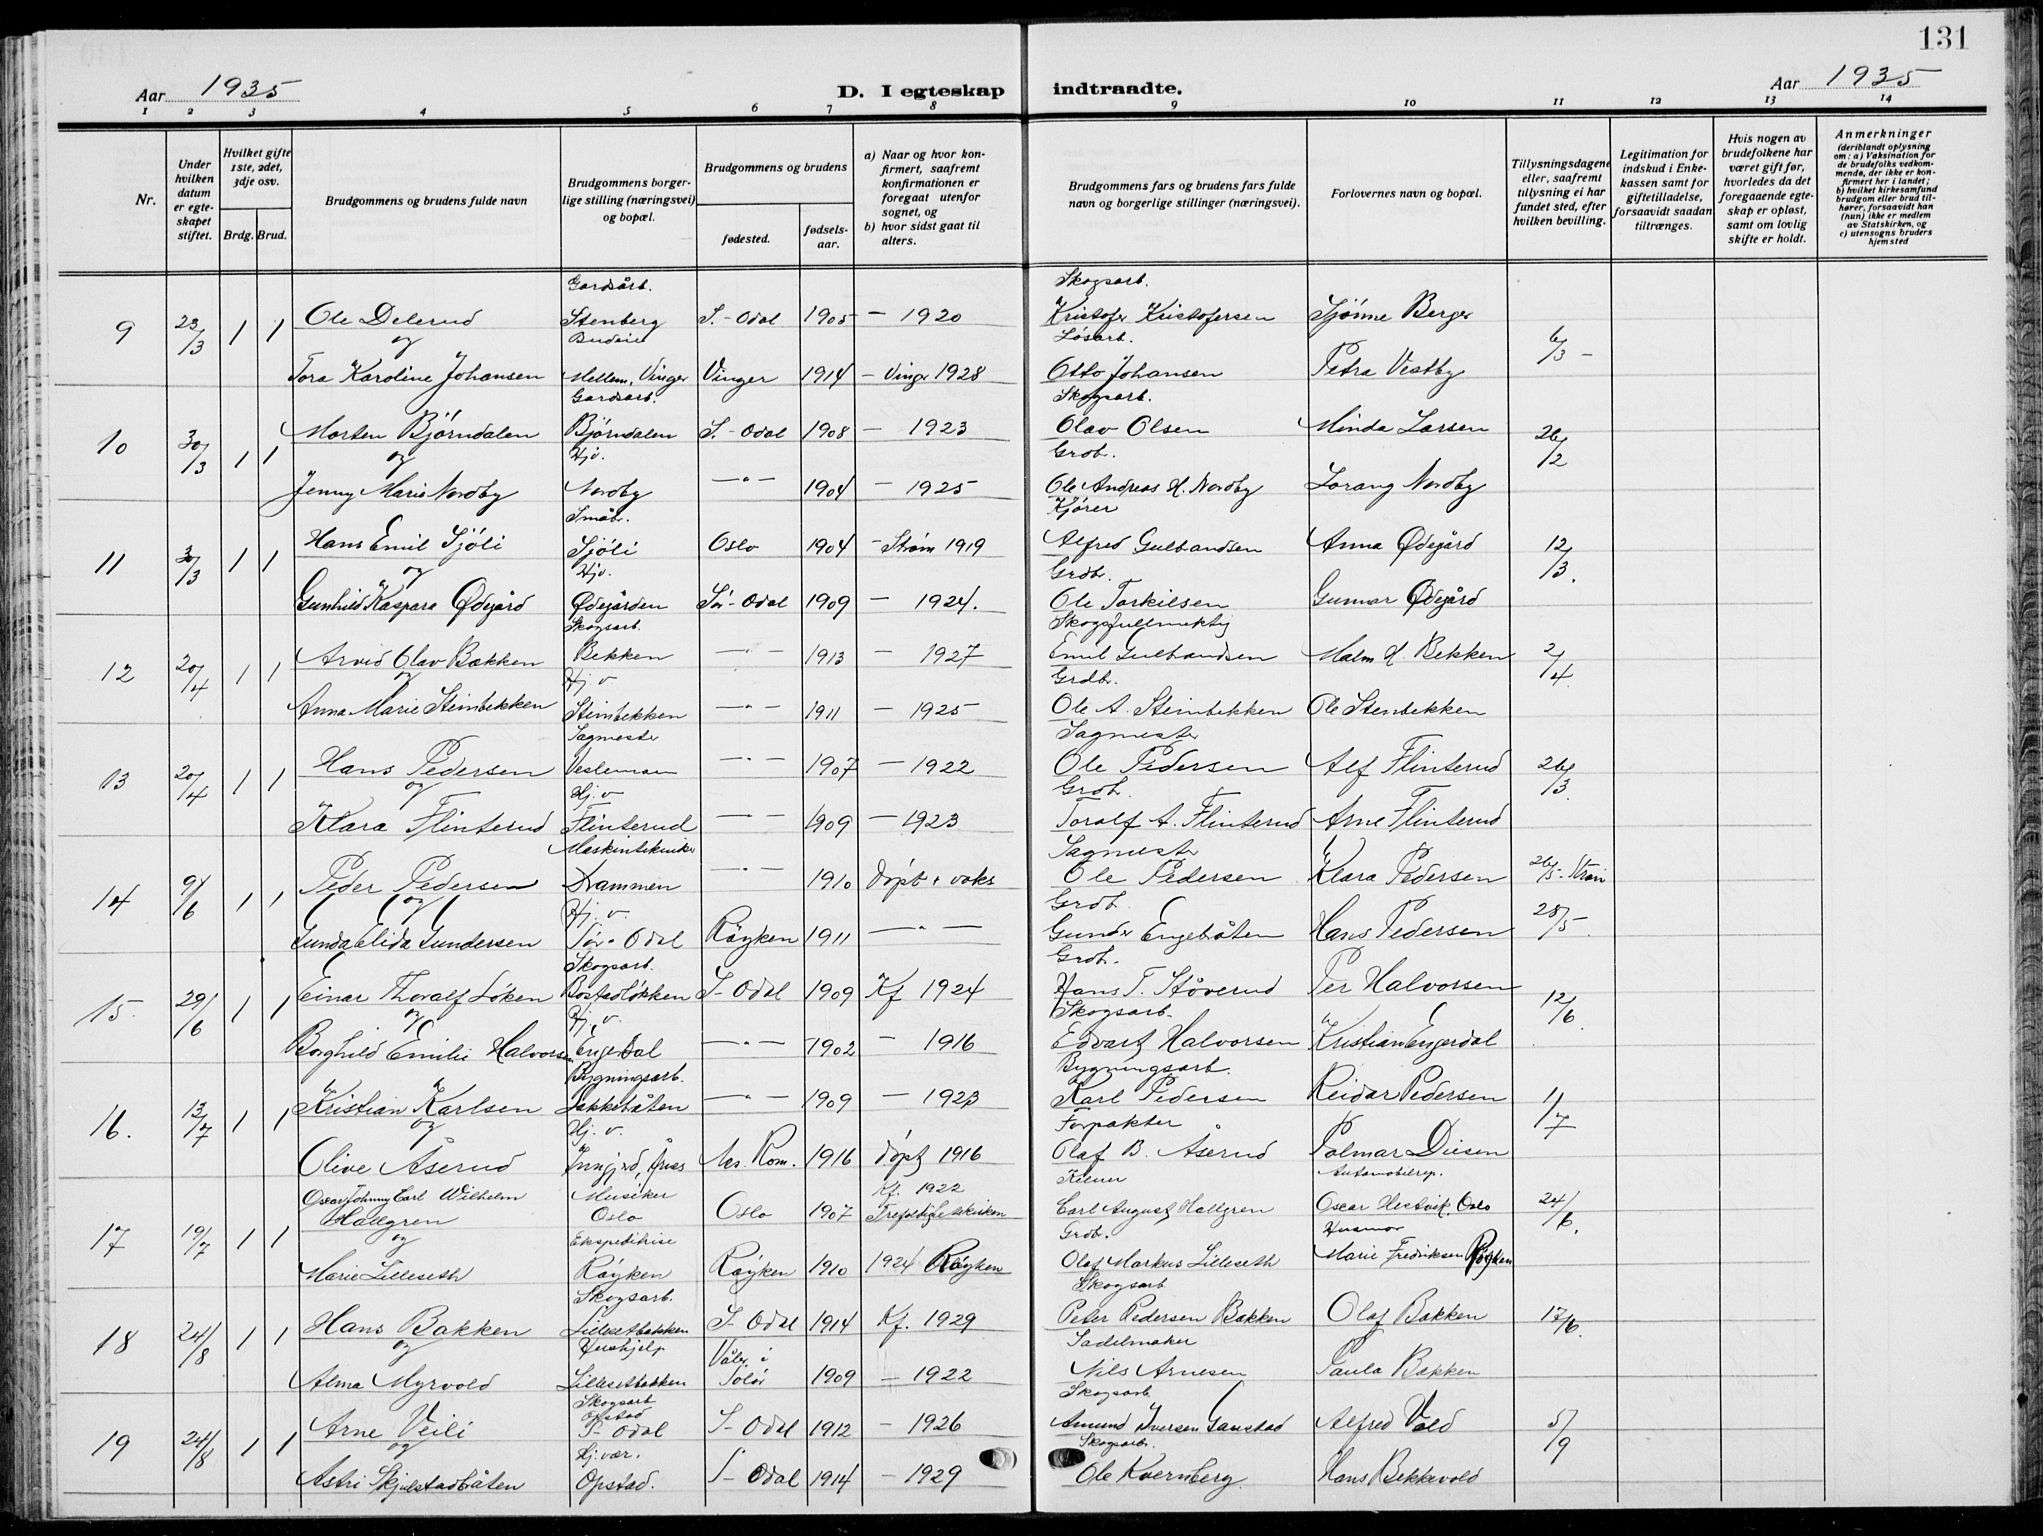 131
Aar 1935
D. I egteskap indtraadte.
Aar 1935
1 2 3 4 5 6 7 8 9 10 11 12 13 14
Nr.
Under hvilken datum er egteskapet stiftet.
Hvilket gifte 1ste, 2det, 3dje osv.
Brdg. Brud.
Brudgommens og brudens fulde navn
Brudgommens borgerlige stilling (næringsvei) og bopæl.
Brudgommens og brudens
fødested.
fødselsaar.
a) Naar og hvor konfirmert, saafremt konfirmationen er foregaat utenfor sognet, og
b) hvor sidst gaat til alters.
Brudgommens fars og brudens fars fulde navn og borgerlige stillinger (næringsvei).
Forlovernes navn og bopæl.
Tillysningsdagene eller, saafremt tillysning ei har fundet sted, efter hvilken bevilling.
Legitimation for indskud i Enkekassen samt for giftetilladelse, forsaavidt saadan tiltrænges.
Hvis nogen av brudefolkene har været gift før, hvorledes da det foregaaende egteskap er opløst, samt om lovlig skifte er holdt.
Anmerkninger (deriblandt oplysning om: a) Vaksination for de brudefolks vedkommende, der ikke er konfirmert her i landet; b) hvilket kirkesamfund brudgom eller brud tilhører, forsaavidt han (hun) ikke er medlem av Statskirken, og c) utensogns bruders hjemsted
Gardsarb. Skogsarb.
9 23/3 1 1 Ole Delerud Stenberg S.-Odal 1905 — 1920 Kristofer Kristofersen Sjønne Berger 6/3 —
og Budeie Løsarb.
Tora Karoline Johansen Mellem, Vinger Vinger 1914 — Vinger 1928 Otto Johansen Petra Vestby
Gardsarb. Skogsarb.
10 30/3 1 1 Morten Bjørndalen Bjørndalen S.-Odal 1908 — 1923 Olav Olsen Minda Larsen 26/2
og Hjv. Grdb.
Jenny Marie Nordby Nordby —"— 1904 — 1925 Ole Andreas H. Nordby Lorang Nordby
Småbr. Kjører
11 30/3 1 1 Hans Emil Sjøli Sjøli Oslo 1904 — Strøm 1919 Alfred Gulbandsen Anna Ødegård 12/3.
og Hjv. Grdb.
Gunhild Kaspara Ødegård Ødegården Sør-Odal 1909 — 1924. Ole Torkilsen Gunnar Ødegård
Skogsarb. Skogsfullmektig
12 20/4 1 1 Arvid Olav Bækken Bekken —"— 1913 — 1927 Emil Gulbandsen Malm H. Bekken 2/4.
og Hj.v Grdb.
Anna Marie Steinbekken Steinbekken —"— 1911 — 1925 Ole A. Steinbekken Ole Stenbekken
Sagmester Sagmester
13 20/4 1 1 Hans Pedersen Vesleman —"— 1907 — 1922 Ole Pedersen Alf Flinterud 26/3.
og Hj.v Grdb.
Klara Flinterud Flinterud —"— 1909 — 1923 Toralf A. Flinterud Arne Flinterud
Maskintekniker Sagmester
14 9/6 1 1 Peder Pedersen Drammen —"— 1910 døpt + vaks Ole Pedersen Klara Pedersen 26/5 - Strøm
og Hj. v. Grdb. 28/5.
Gunda Elida Gundersen Sør-Odal Røyken 1911 —"— Gunder Engebåten Hans Pedersen
Skogsarb. Grdb.
15. 29/6 1 1 Einar Thoralf Løken Bostadløkken S-Odal 1909 Kf 1924 Hans T. Støverud Per Halvorsen 12/6.
og Hj. v. Skogsarb.
Borghild Emilie Halvorsen Engerdal —"— 1902 — 1916 Edvart Halvorsen Kristian Engerdal
Bygningsarb. Bygningsarb.
16. 13/7 1 1 Kristian Karlsen Sakkebåten —"— 1909 — 1923 Karl Pedersen Reidar Pedersen 1/7
og Hj. v. Forpakter
Olive Åserud Nes. Rom. 1916 døpt 1916 Olaf B. Åserud Polmar Diesen
Oscar Johnny Carl Wilhelm Musiker Kf. 1922 Kelner Automobilrep.
17 19/7 1 1 Hallgren Oslo Oslo 1907 Trefoldighetskirken Carl August Hallgren Oscar Hestvik, Oslo 24/6.
og Ekspeditrise Grdb. Husmor
Marie Lilleseth Røyken Røyken 1910 1924 Røyken Olaf Markus Lilleseth Marie Fredriksen Røyken
Skogsarb. Skogsarb
18 24/8 1 1 Hans Bakken Lillesetbakken S-Odal 1914 Kf. 1929 Peter Pedersen Bakken Olaf Bakken 17/6.
og Hushjelp Våler i Sadelmaker
Alma Myrvold Lillesetbakken Solør 1909 — 1922 Nils Arnesen Paula Bakken
Skogsarb Opstad Skogsarb.
19 24/8 1 1 Arne Veili S-Odal S-Odal 1912 — 1926 Amund Iversen Ganstad Alfred Vold 5/9
og Hj.vær. Skogsarb.
Astri Skjulstadbråten Opstad. S-Odal 1914 — 1929 Ole Kvernberg. Hans Bekkevold